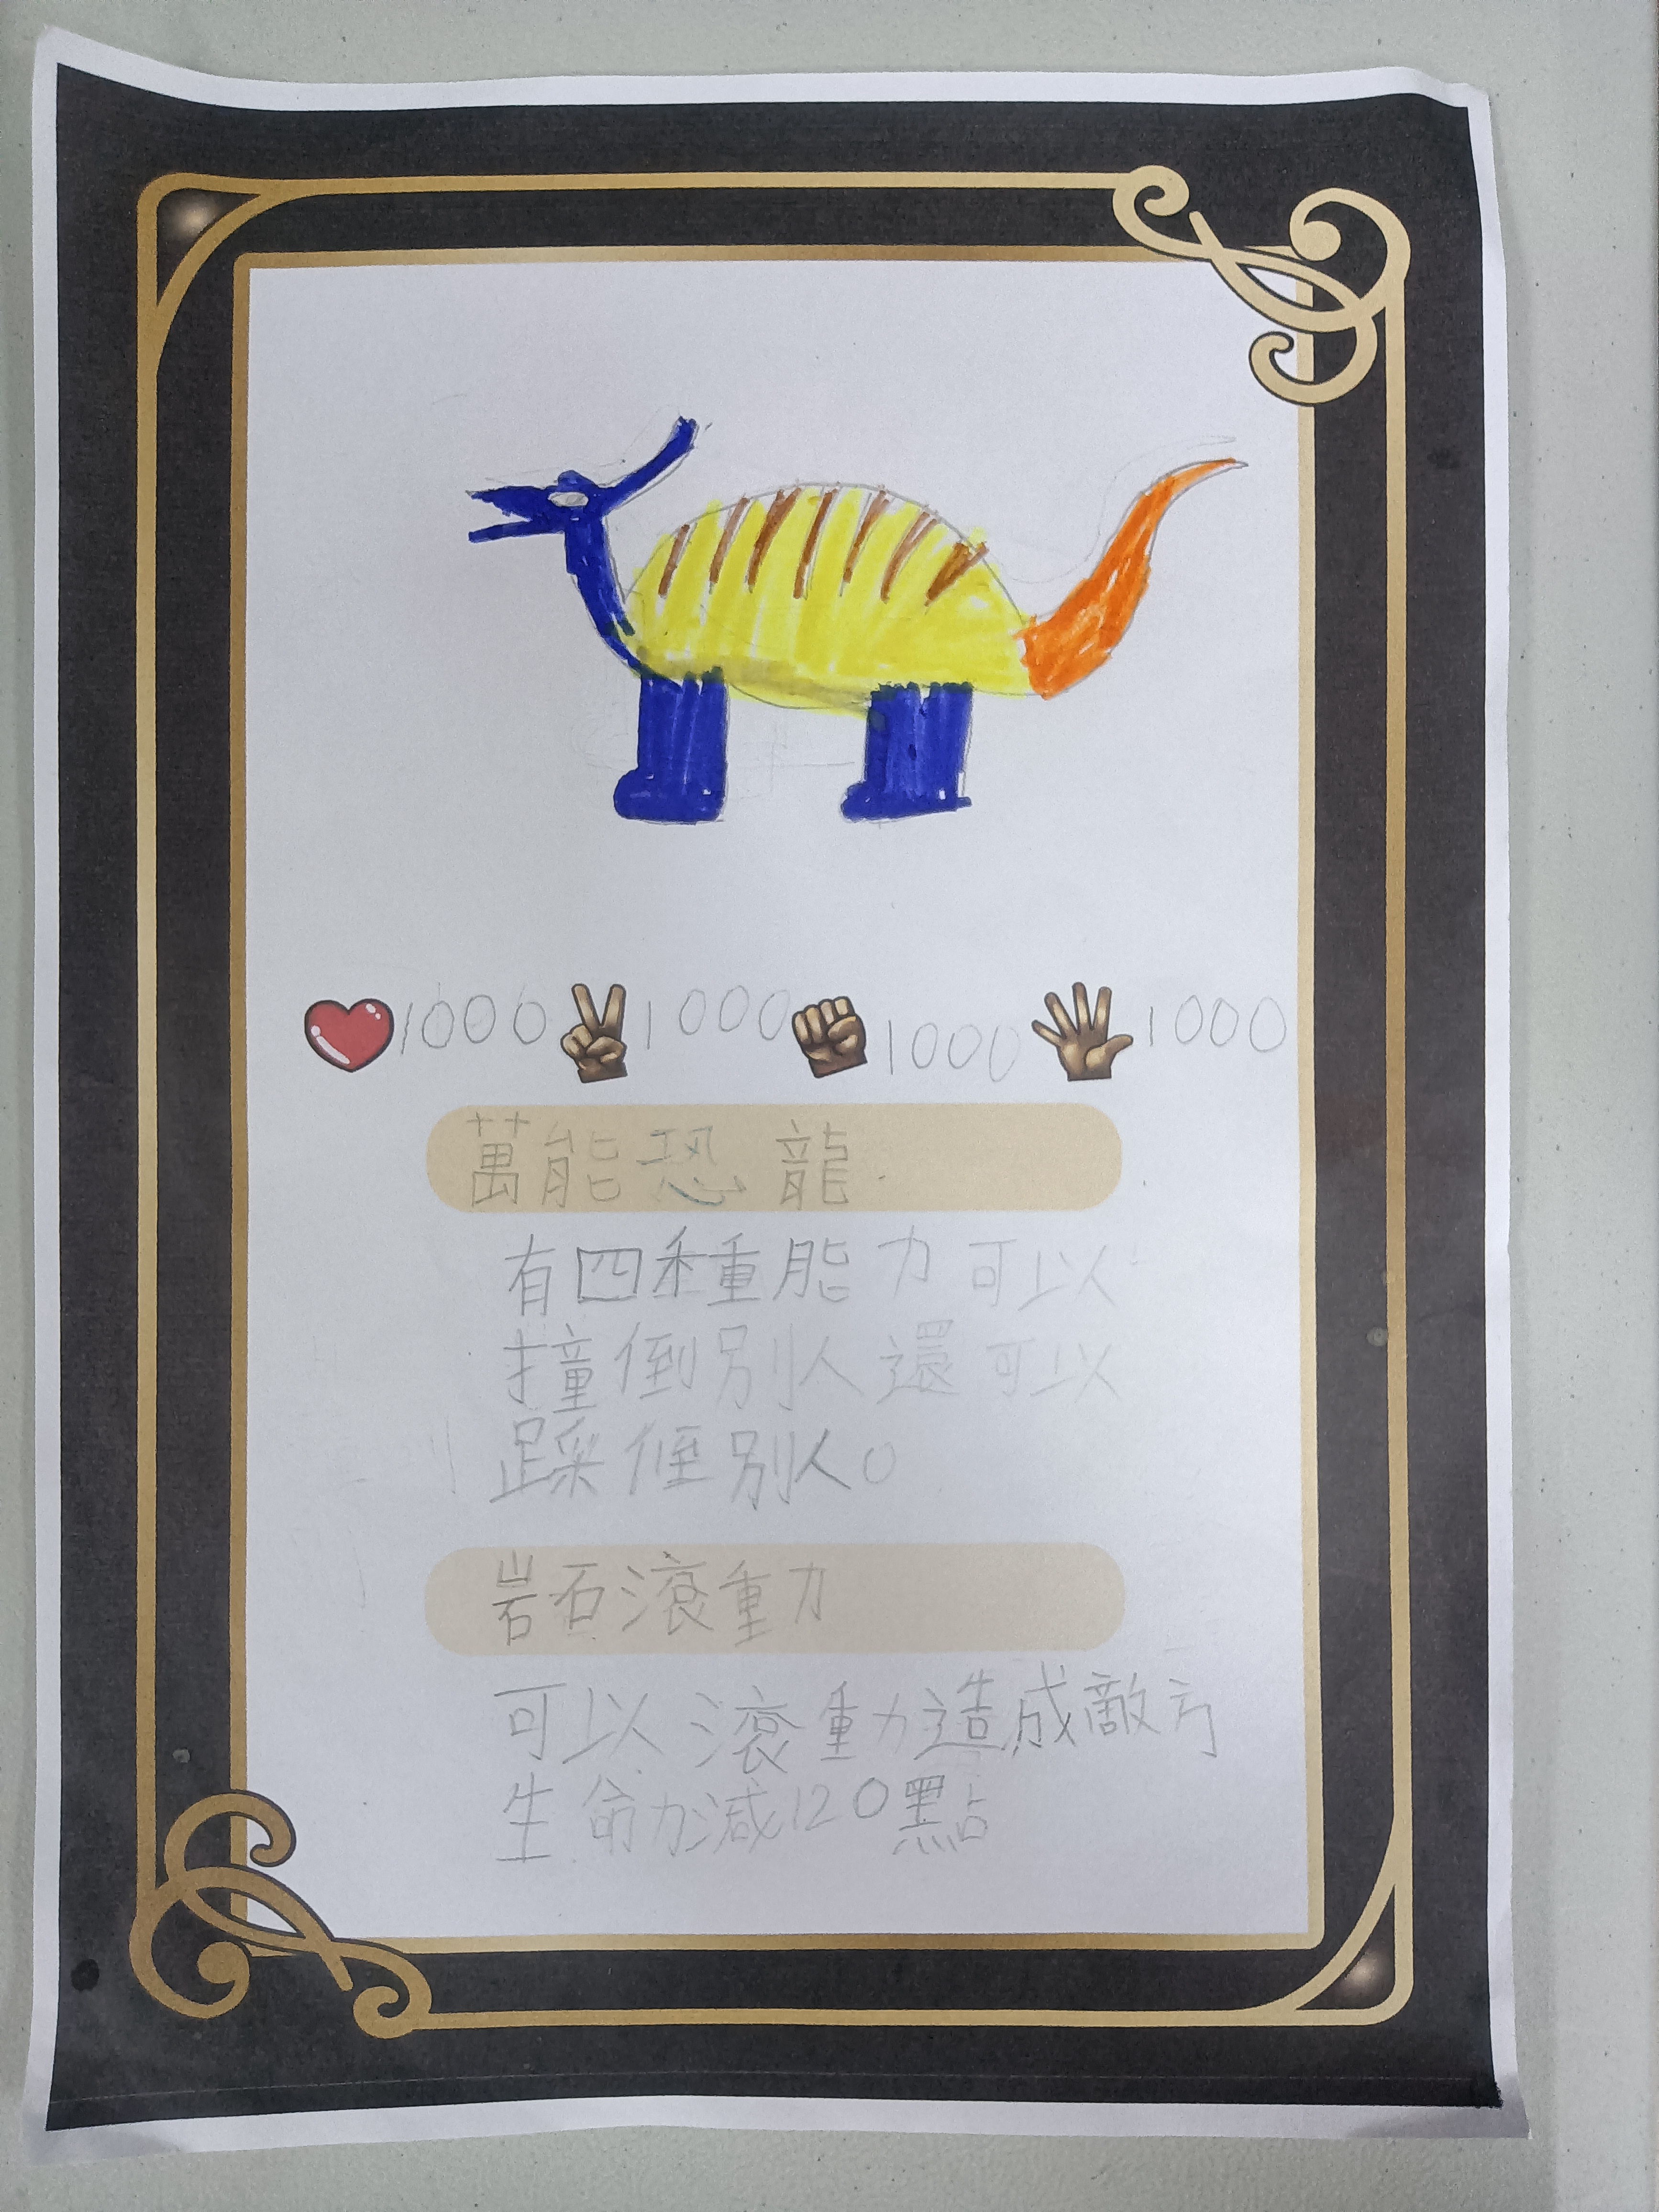 1000 1000 1000 1000
萬能恐龍
有四種能力可以
撞倒別人還可以
踩倒別人。
岩石滾動
可以滾動造成敵方
生命力減120點